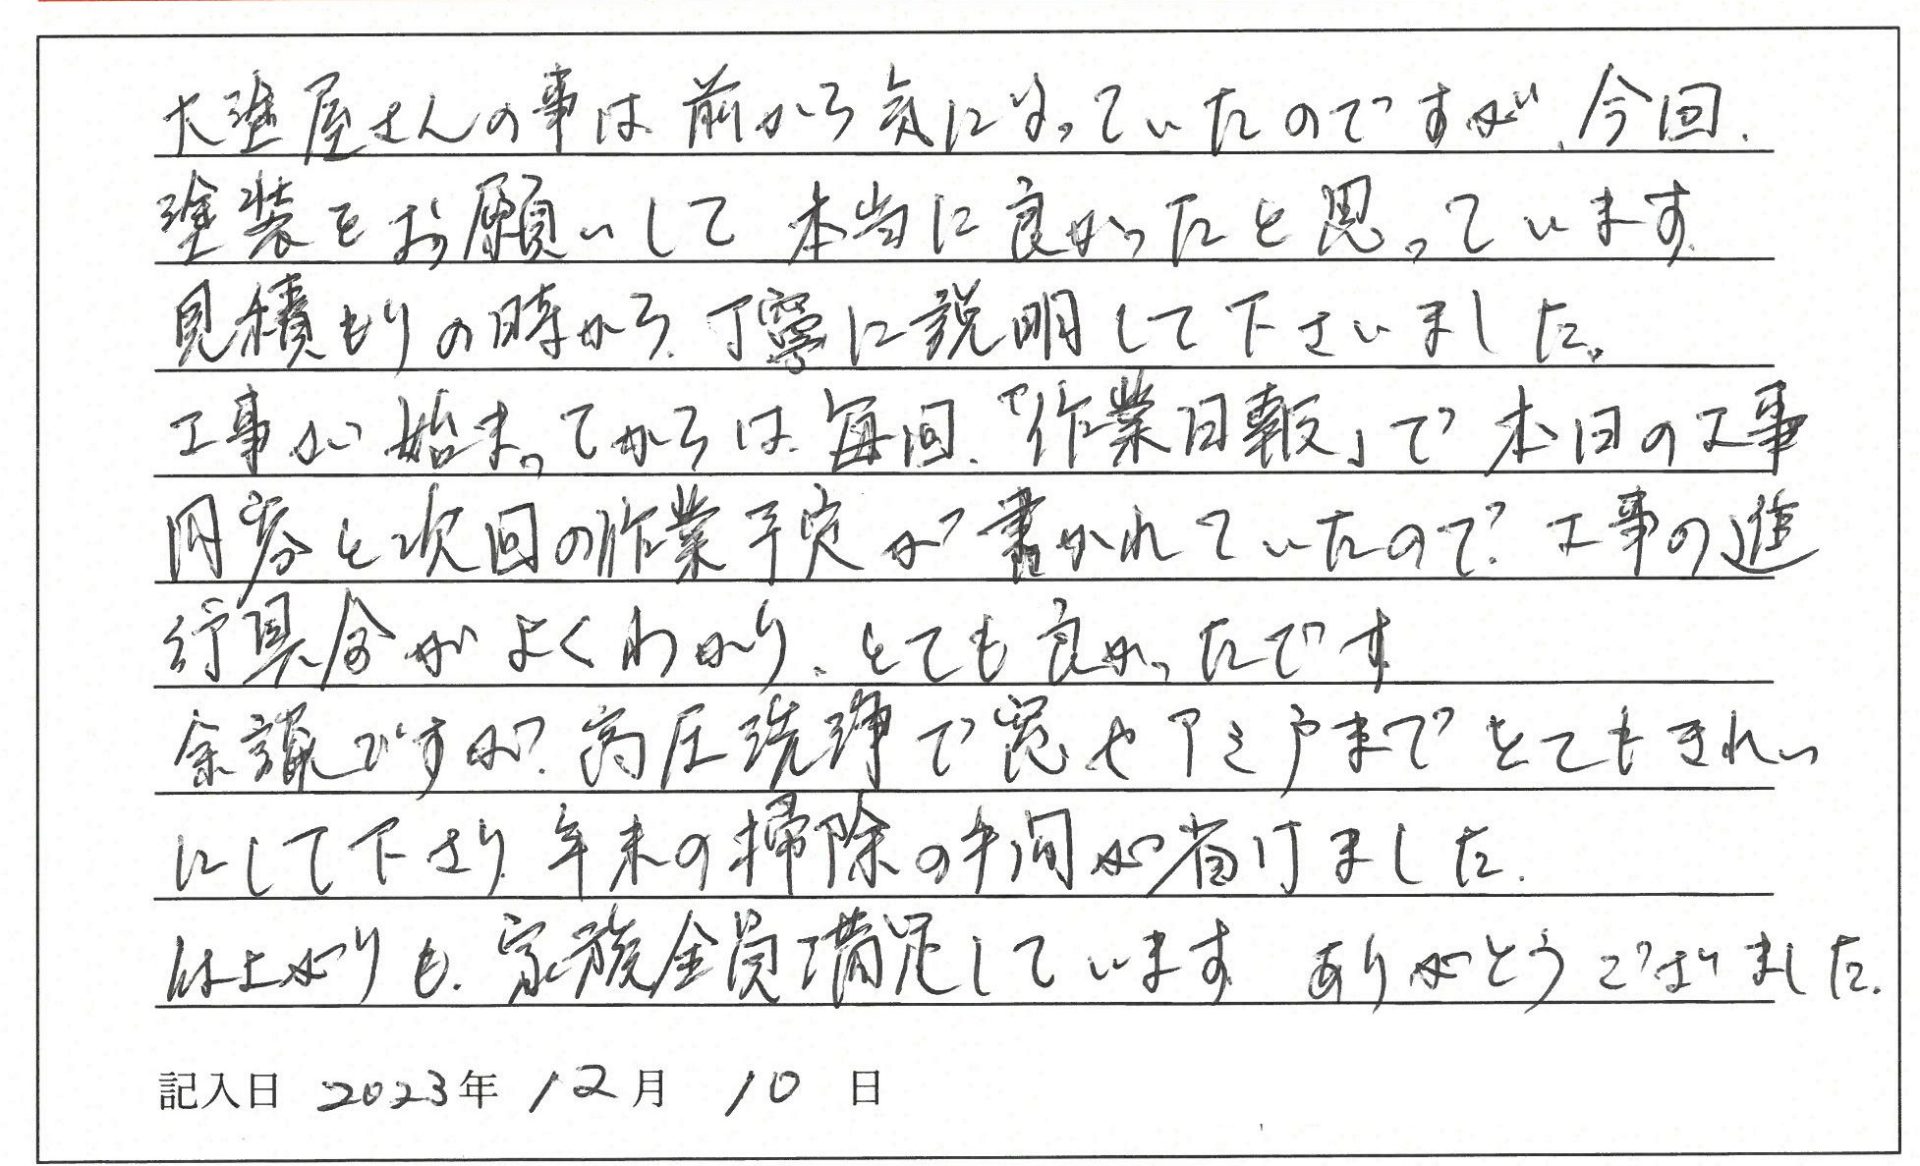 大塗屋さんの事は前から気になっていたのですが、今回、
塗装をお願いして本当に良かったと思っています。
見積もりの時から、丁寧に説明して下さいました。
工事が始まってからは、毎回、「作業日報」で本日の工事
内容と次回の作業予定が書かれていたので、工事の進
行具合がよくわかり、とても良かったです
余談ですが、高圧洗浄で窓やアミ戸までとてもきれい
にして下さり、年末の掃除の手間が省けました。
仕上がりも、家族全員満足しています ありがとうございました。
記入日 2023年 12月 10日